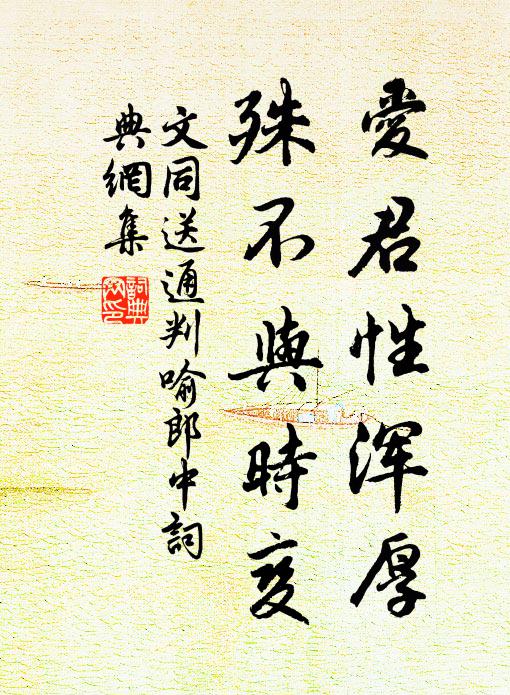 愛君性渾厚
殊不與時变
文同送通判喻郎中詞
典網集
詞典
网印